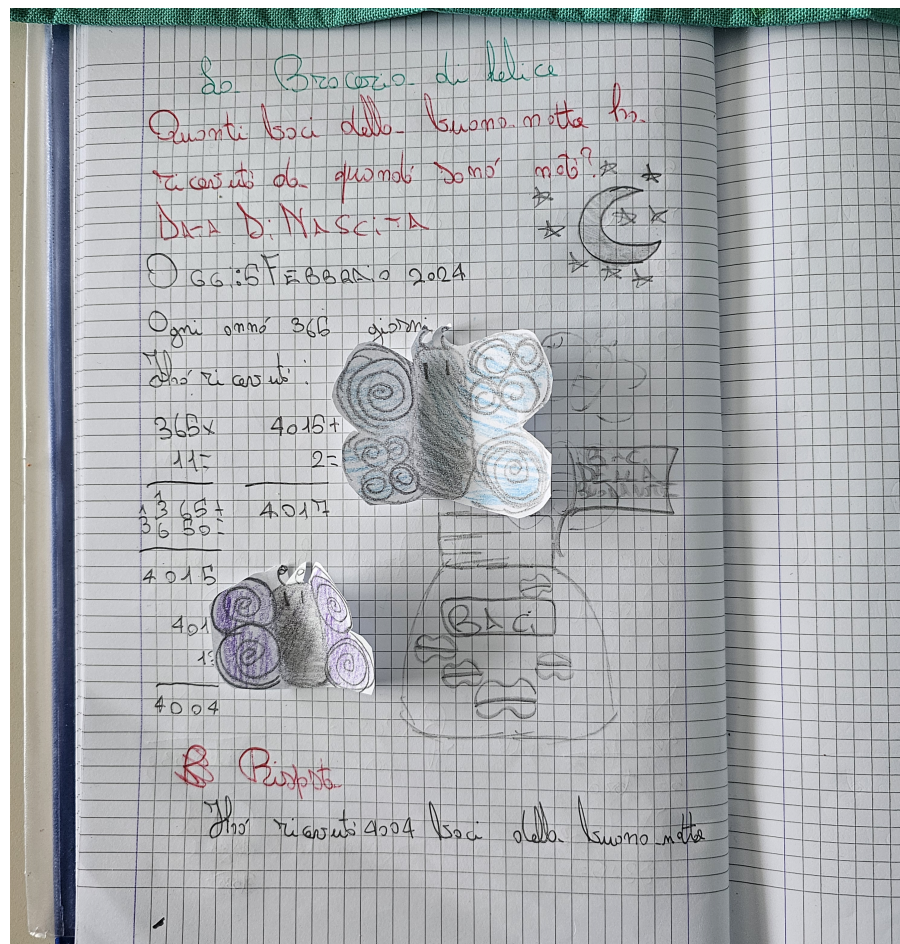 La Brocoria di felice
Quanti baci della buona notte ho
ricevuto da quando sono nato?
DATA Di NASCiTA
OGGi:5 FEBBRAiO 2024
Ogni anno 365 giorni
Iho ricevuto:
365x 4015+
11= 2=
365+ 4017
3650=
4015
401
1
4004
BACi
Risposta
Iho ricevuto 4004 baci della buona notte